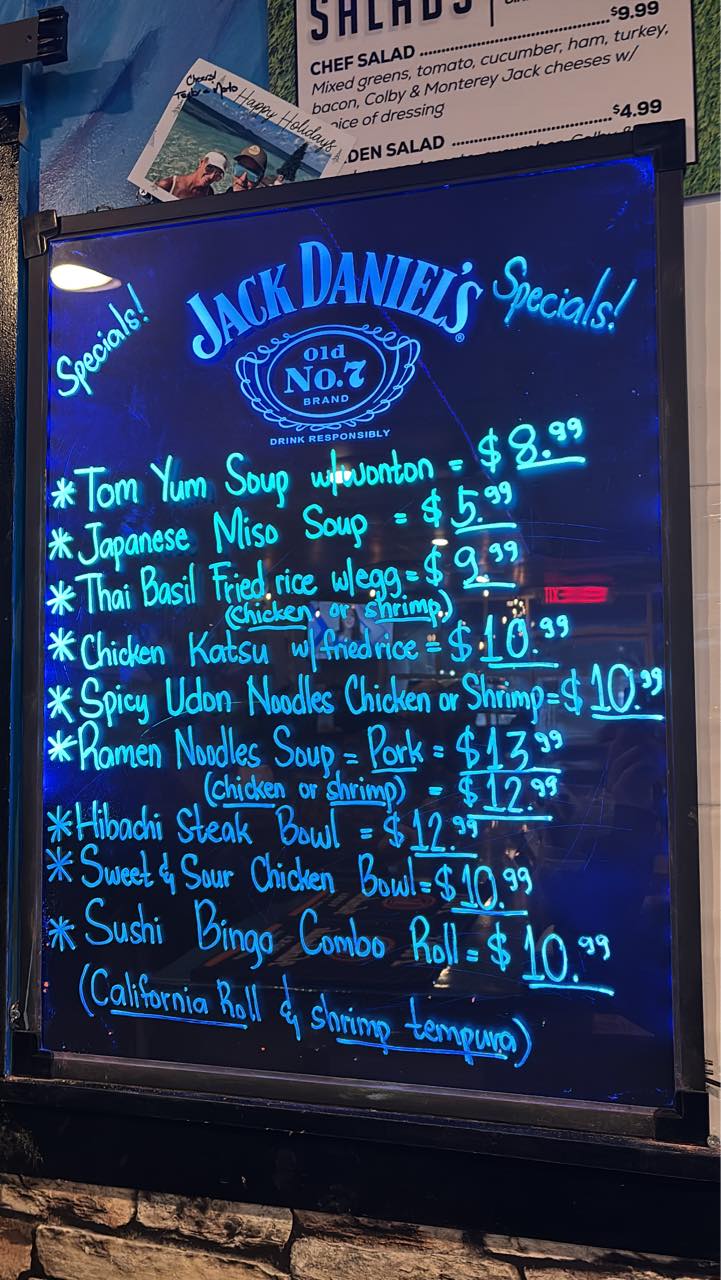 SALADS
$9.99
CHEF SALAD
Mixed greens, tomato, cucumber, ham, turkey,
bacon, Colby & Monterey Jack cheeses w/
oice of dressing
$4.99
DEN SALAD
Cheers!
Happy Holidays
Specials!
JACK DANIEL'S®
Specials!
Old
No.7
BRAND
DRINK RESPONSIBLY
* Tom Yum Soup w/wonton = $8.99
* Japanese Miso Soup = $5.99
* Thai Basil Fried rice w/egg = $9.99
(chicken or shrimp)
* Chicken Katsu w/ fried rice = $10.99
* Spicy Udon Noodles Chicken or Shrimp = $10.99
* Ramen Noodles Soup = Pork = $13.99
(chicken or shrimp) = $12.99
* Hibachi Steak Bowl = $12.99
* Sweet & Sour Chicken Bowl = $10.99
* Sushi Bingo Combo Roll = $10.99
(California Roll & shrimp tempura)